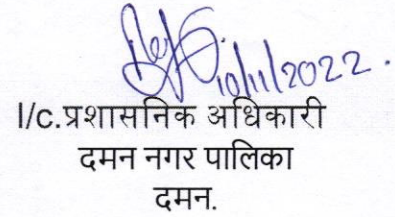 10/11/2022.
I/c.प्रशासनिक अधिकारी
दमन नगर पालिका
दमन.